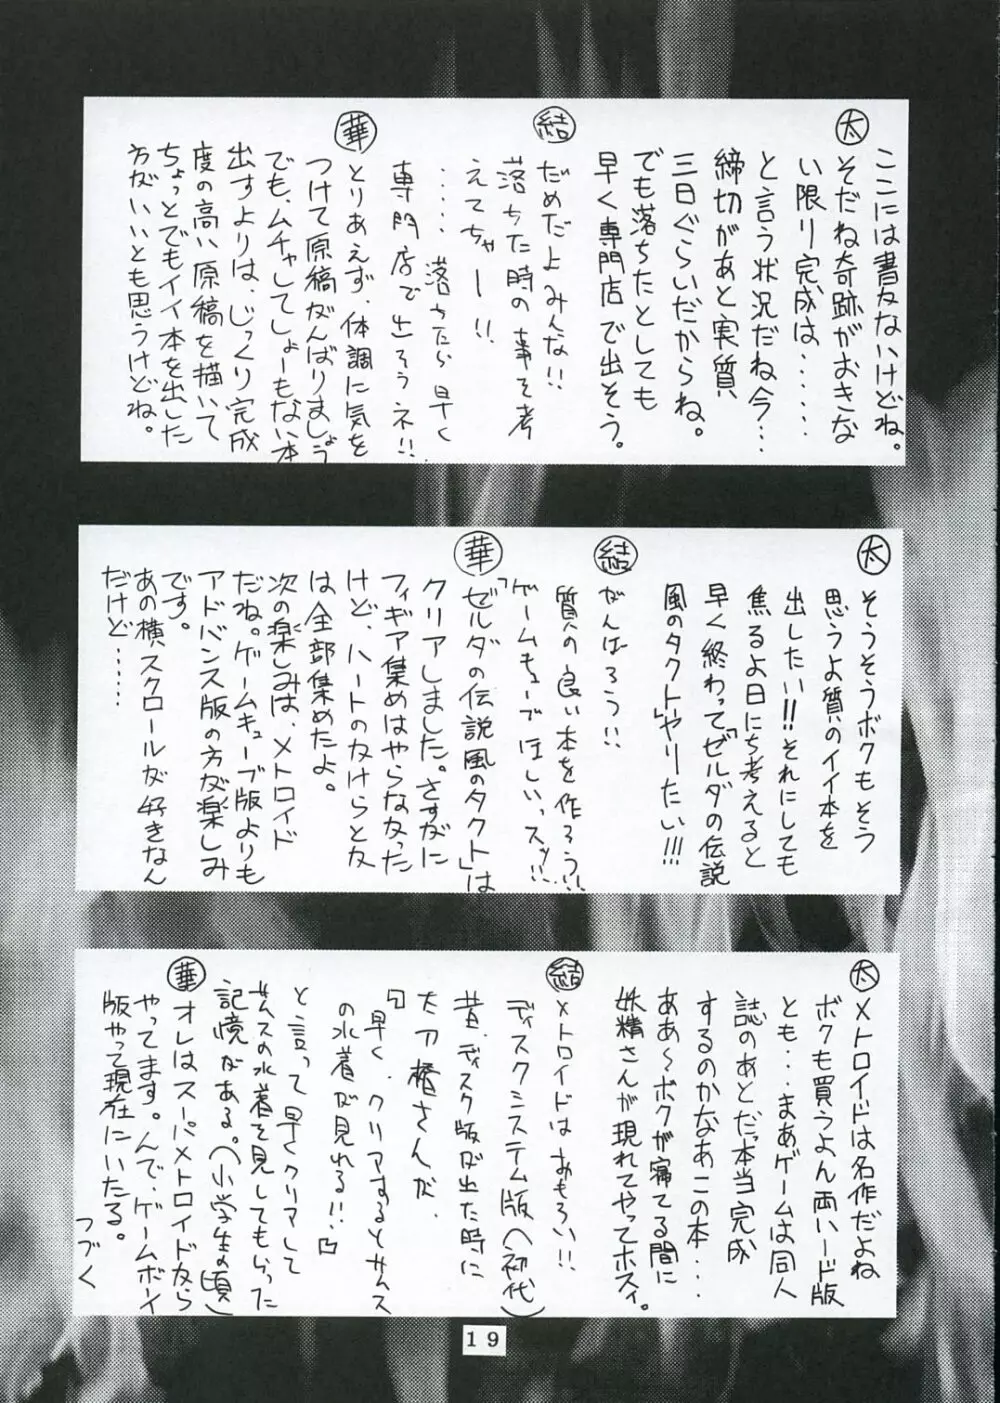 ここには書けないけどね。
太
そだね奇跡がおきな
い限リ完成は・・・・・・
と言う状況だね今・・・
締切があと実質
三日ぐらいだからね。
でも落ちたとしても
早く専門店で出そう。
結
だめだよみんな!!
落ちた時の事を考
えてちゃー!!
・・・・落ちたら早く
専門店で出そうネ!!
華
とりあえず、体調に気を
つけて原稿がんばりましょう
でも、ムチャしてしょーもない本
出すよりは、じっくり完成
度の高い原稿を描いて
ちょっとでもイイ本を出した
方がいいとも思うけどね。
太
そうそうボクもそう
思うよ質のイイ本を
出したい!!それにしても
焦るよ日にち考えると
早く終わって「ゼルダの伝説
風のタクト」やりたい!!!
結
がんばろう!!
質の良い本を作ろう!!
「ゲームキューブほしいっスッ!!
華
「ゼルダの伝説風のタクト」は
クリアしました。さすがに
フィギア集めはやらなかった
けど、ハートのかけらとか
は全部集めたよ。
次の楽しみは、メトロイド
だね。ゲームキューブ版よりも
アドバンス版の方が楽しみ
です。
あの横スクロールが好きなん
だけど・・・・・・
太
メトロイドは名作だよね
ボクも買うよん両ハード版
とも・・・まあゲームは同人
誌のあとだっ本当完成
するのかなあこの本・・・・
ああ〜ボクが寝てる間に
妖精さんが現れてやってホスィ。
結
メトロイドはおもろい!!
ディスクシステム版(初代)
昔、ディスク版が出た時に
大刀橋さんが、
「早く、クリアするとサムス
の水着が見れる!!」
と言って早くクリアして
サムスの水着を見してもらった
記憶がある。(小学生の頃)
華
オレはスーパメトロイドから
やってます。んで、ゲームボーイ
版やって現在にいたる。
つづく
19